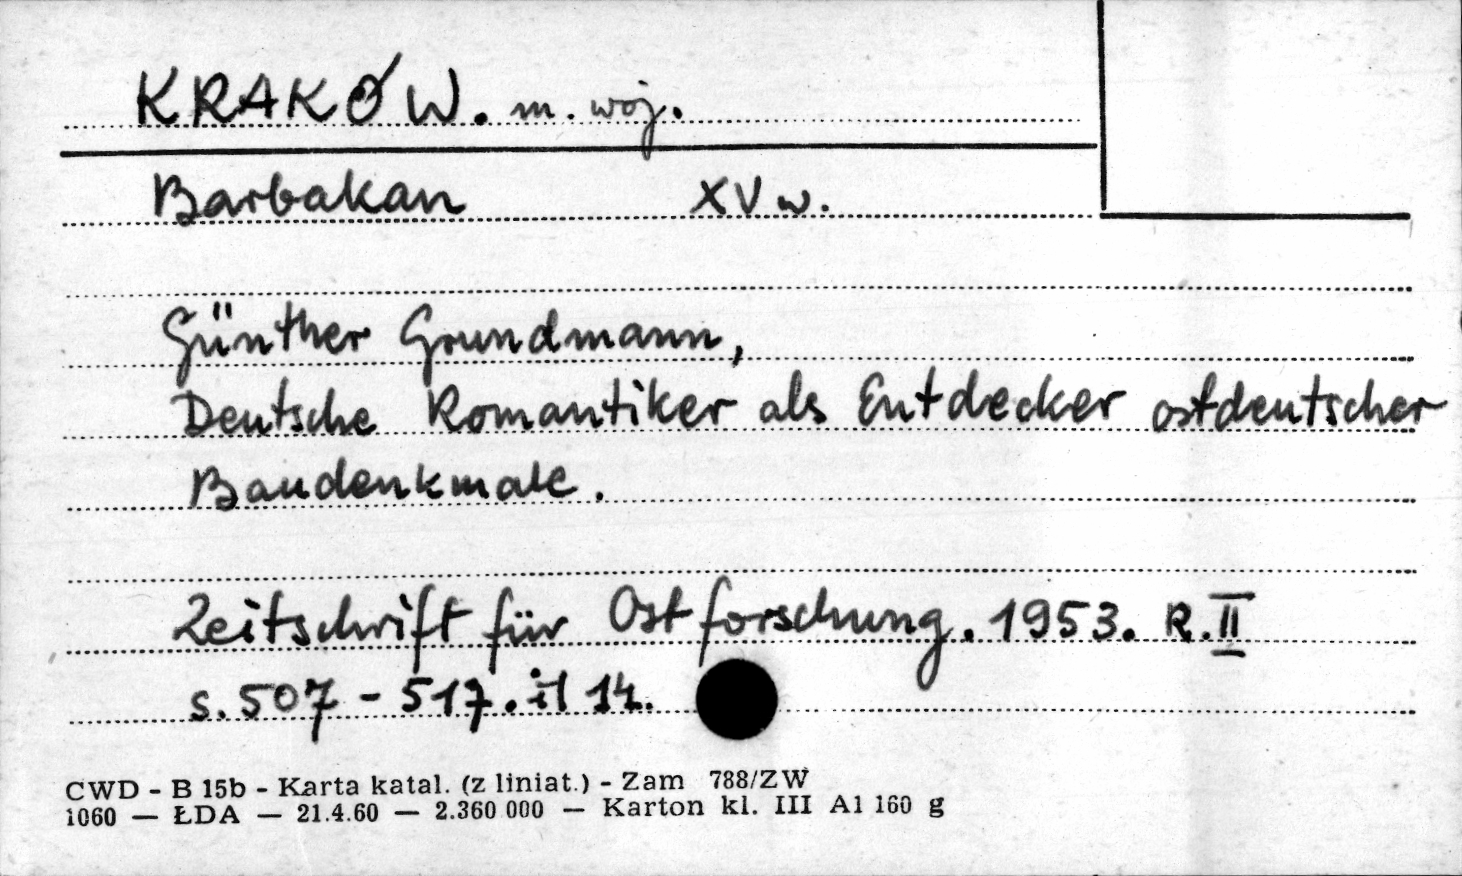 KRAKÓW. m. woj.
Barbakan XV w.
Günther Grundmann,
Deutsche Romantiker als Entdecker ostdeutscher
Baudenkmale.
Zeitschrift für Ostforschung. 1953. R. II
s. 507 - 517. il 14.
CWD - B 15b - Karta katal. (z liniat.) - Zam 788/ZW
1060 — ŁDA — 21.4.60 — 2.360 000 — Karton kl. III A1 160 g